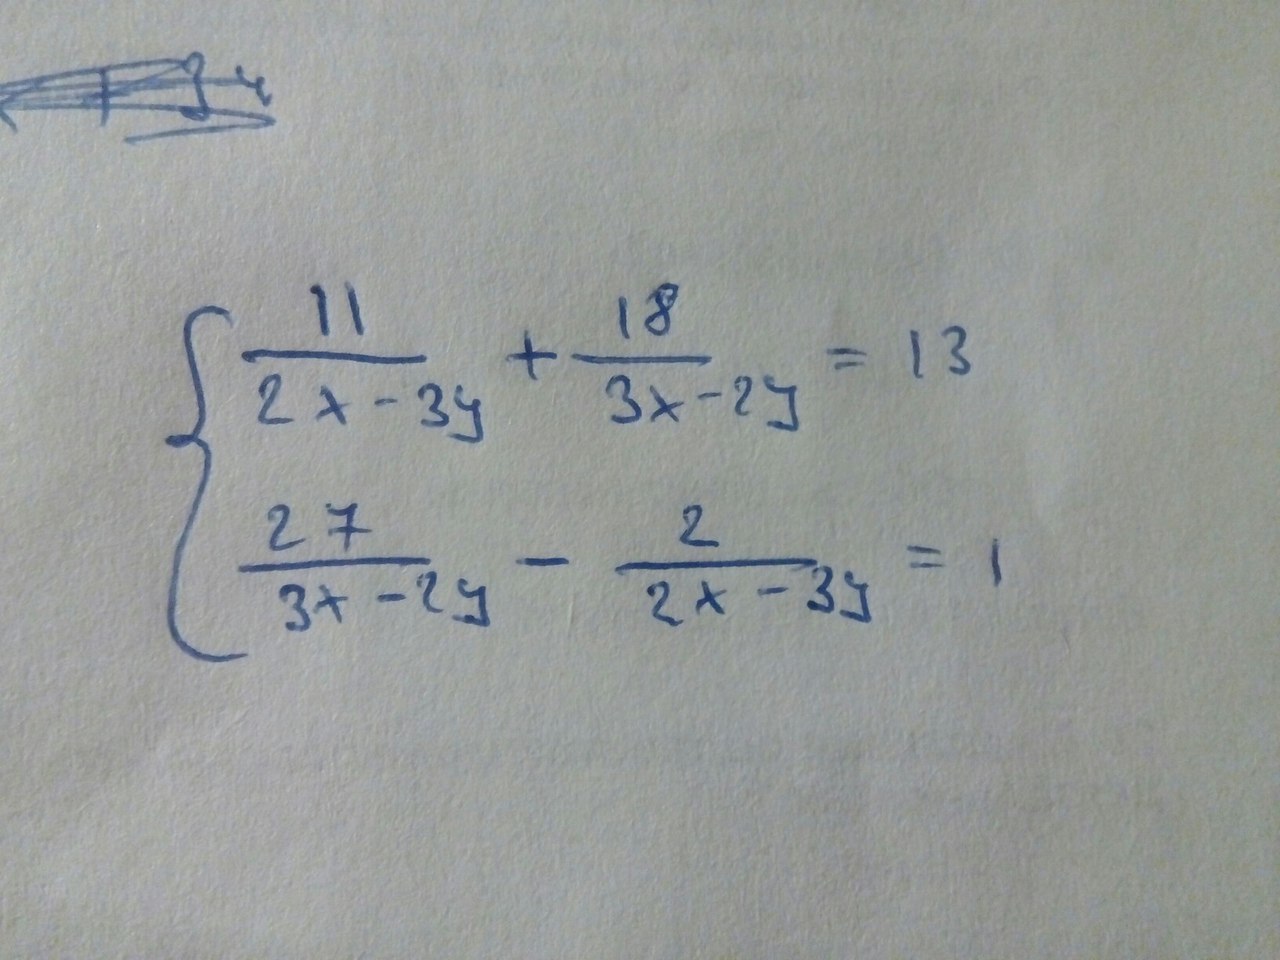 11/(2x-3y) + 18/(3x-2y) = 13
27/(3x-2y) - 2/(2x-3y) = 1